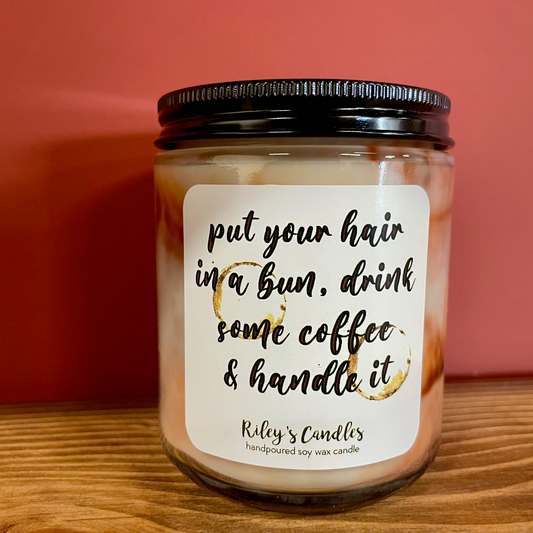 put your hair
in a bun, drink
some coffee
& handle it
Riley's Candles
handpoured soy wax candle